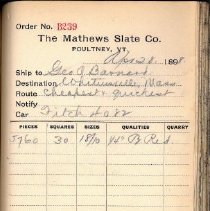 Order No. B259
The Mathews Slate Co.
POULTNEY, VT.
Apr 28, 189
Ship to Geo. O Barnard
Destination Whitinsville, Mass
Route Cheapest & Quickest
Notify
Car Fitch
PIECES SQUARES SIZES QUALITIES QUARRY
5760 30 18/10 Red